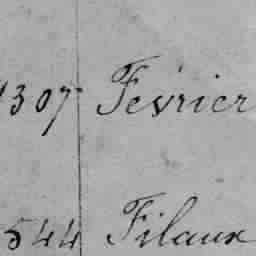 1307 Fevrier
544 Filaux